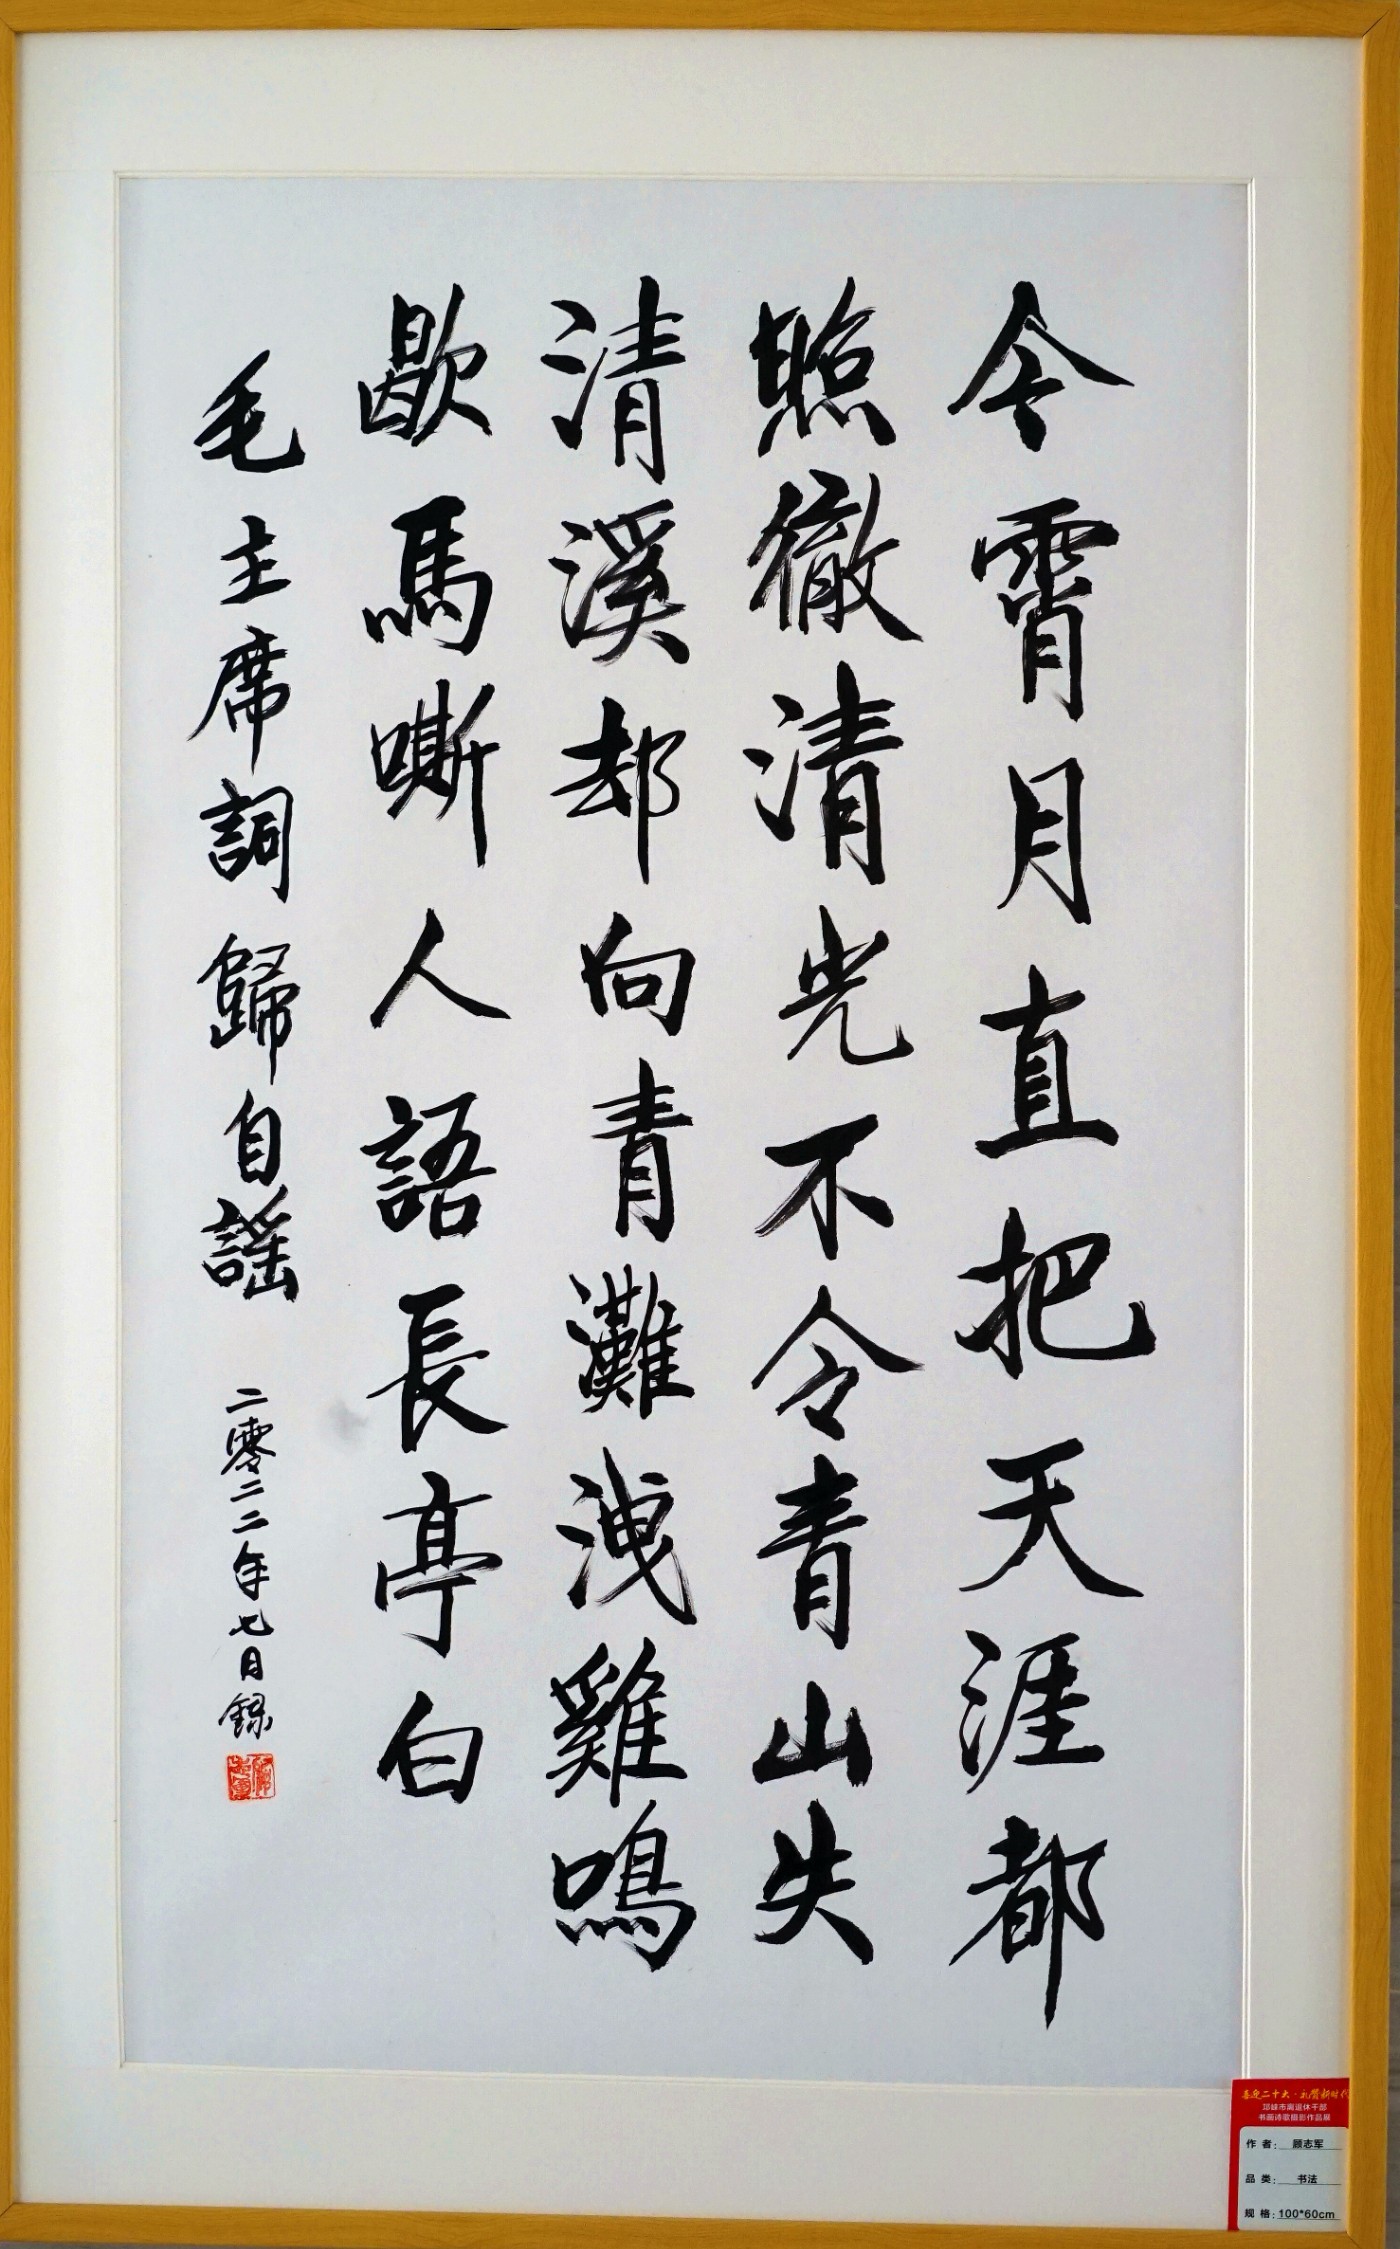 今霄月直把天涯都
照徹清光不令青山失
清溪却向青灘洩雞鳴
歇馬嘶人語長亭白
毛主席詞歸自謠
二零二二年七月錄
喜迎二十大·礼赞新时代
邛崃市离退休干部
书画诗歌摄影作品展
作者：顾志军
品类：书法
规格：100*60cm